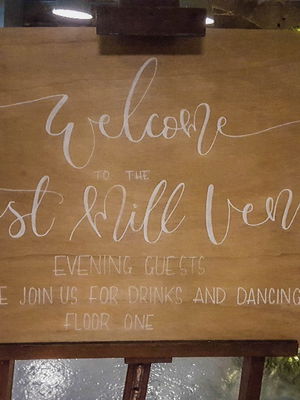 Welcome
TO THE
st Mill Ven
EVENING GUESTS
E JOIN US FOR DRINKS AND DANCING
FLOOR ONE